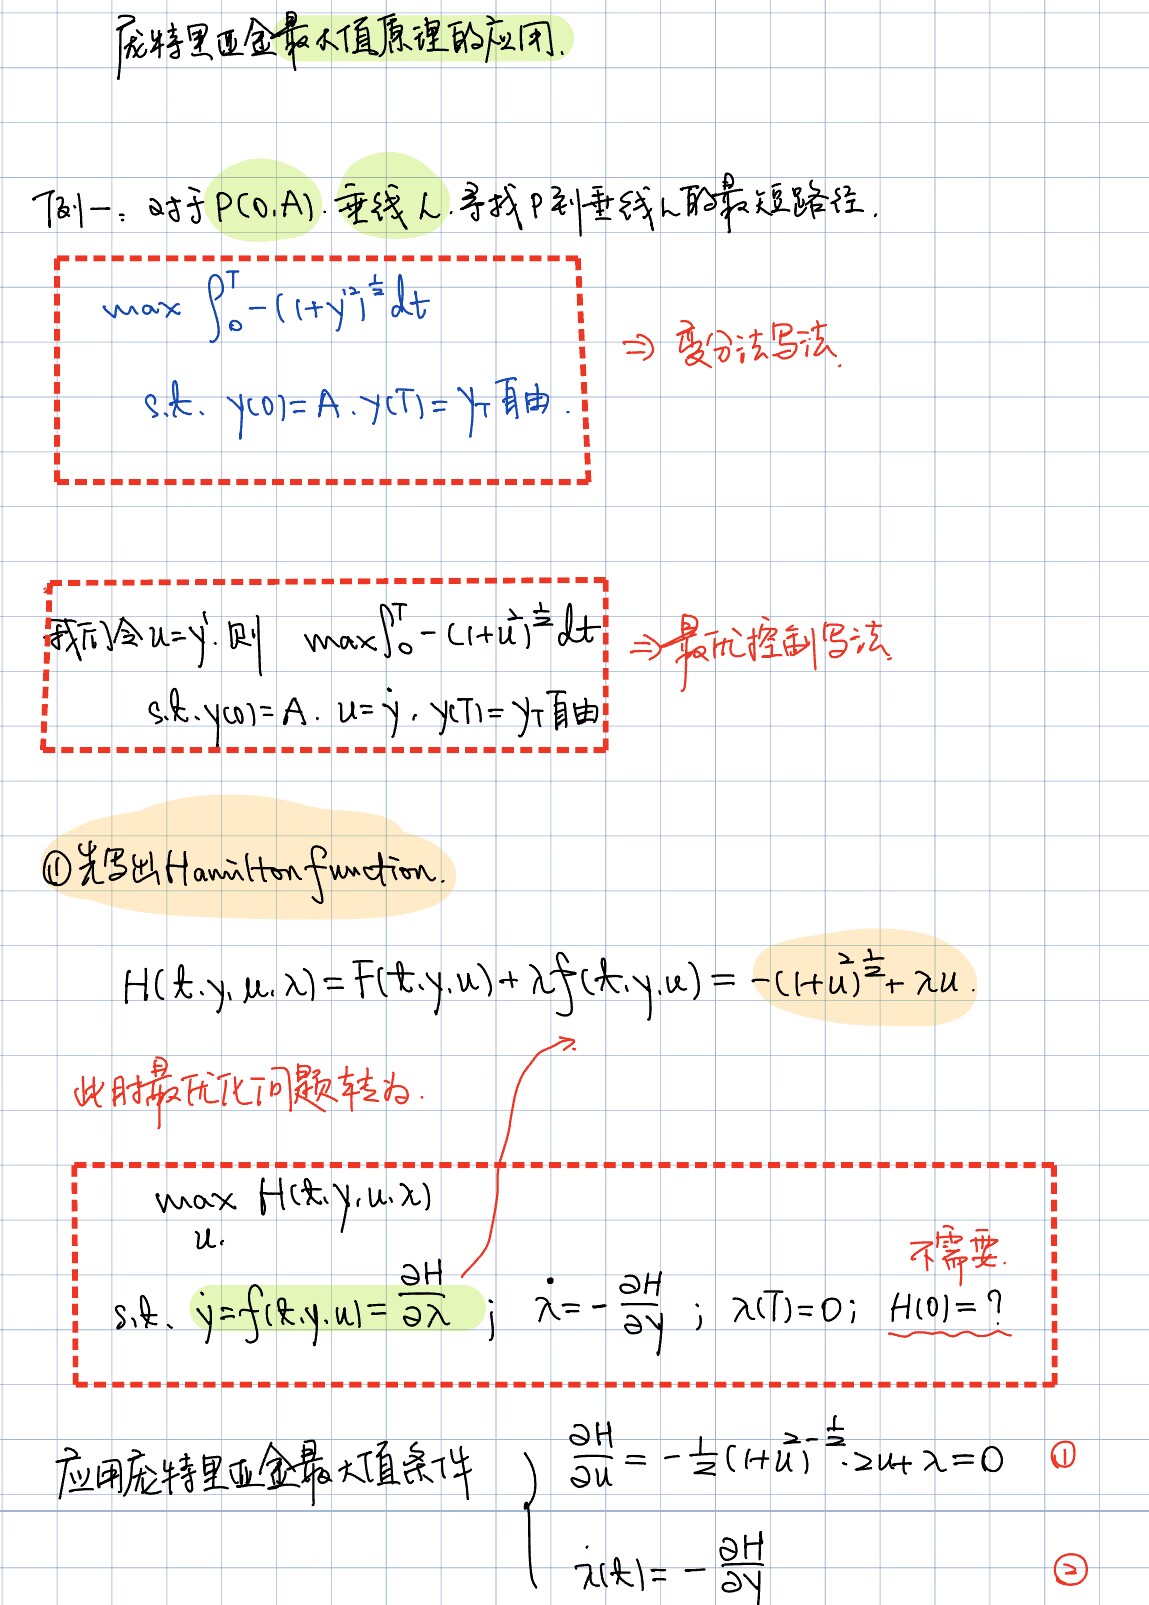 庞特里亚金最大值原理的应用.
例一: 对于P(0,A).垂线L.寻找P到垂线L的最短路径.
max ∫₀ᵀ -(1+y'²)^½ dt
⇒ 变分法写法.
s.t. y(0)=A. y(T)=y_T自由.
我们令u=y'.则 max∫₀ᵀ -(1+u²)^½ dt
⇒最优控制写法.
s.t. y(0)=A. u=ẏ, y(T)=y_T自由
①先写出Hamilton function.
H(t.y,u,λ)=F(t.y,u)+λf(t,y,u)=-(1+u²)^½+λu.
此时最优化问题转为.
max H(t.y,u.λ)
u.
不需要.
s.t. ẏ=f(t,y,u)=∂H/∂λ ; λ̇=-∂H/∂y ; λ(T)=0; H(0)=?
应用庞特里亚金最大值条件
∂H/∂u=-½(1+u²)^-½·2u+λ=0 ①
λ̇(t)=-∂H/∂y ②